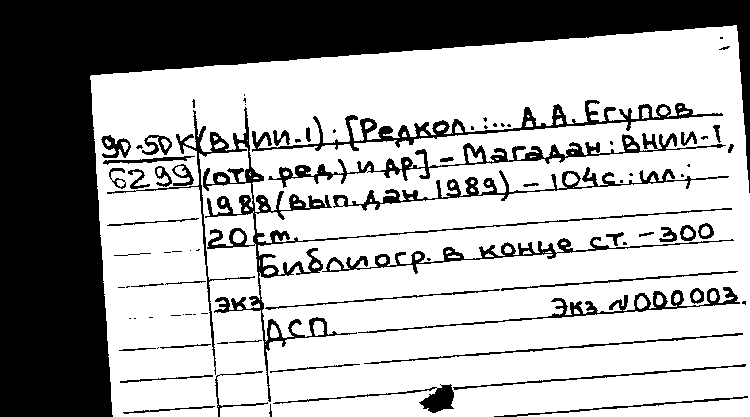 90-5DК (ВНИИ-1); [Редкол.:... А.А. Егупов
6299 (отв. ред.) и др.] - Магадан: ВНИИ-I,
1988 (вып. дан. 1989) - 104с.: ил.;
20 см.
Библиогр. в конце ст. - 300
экз.
ДСП. Экз. N000003.